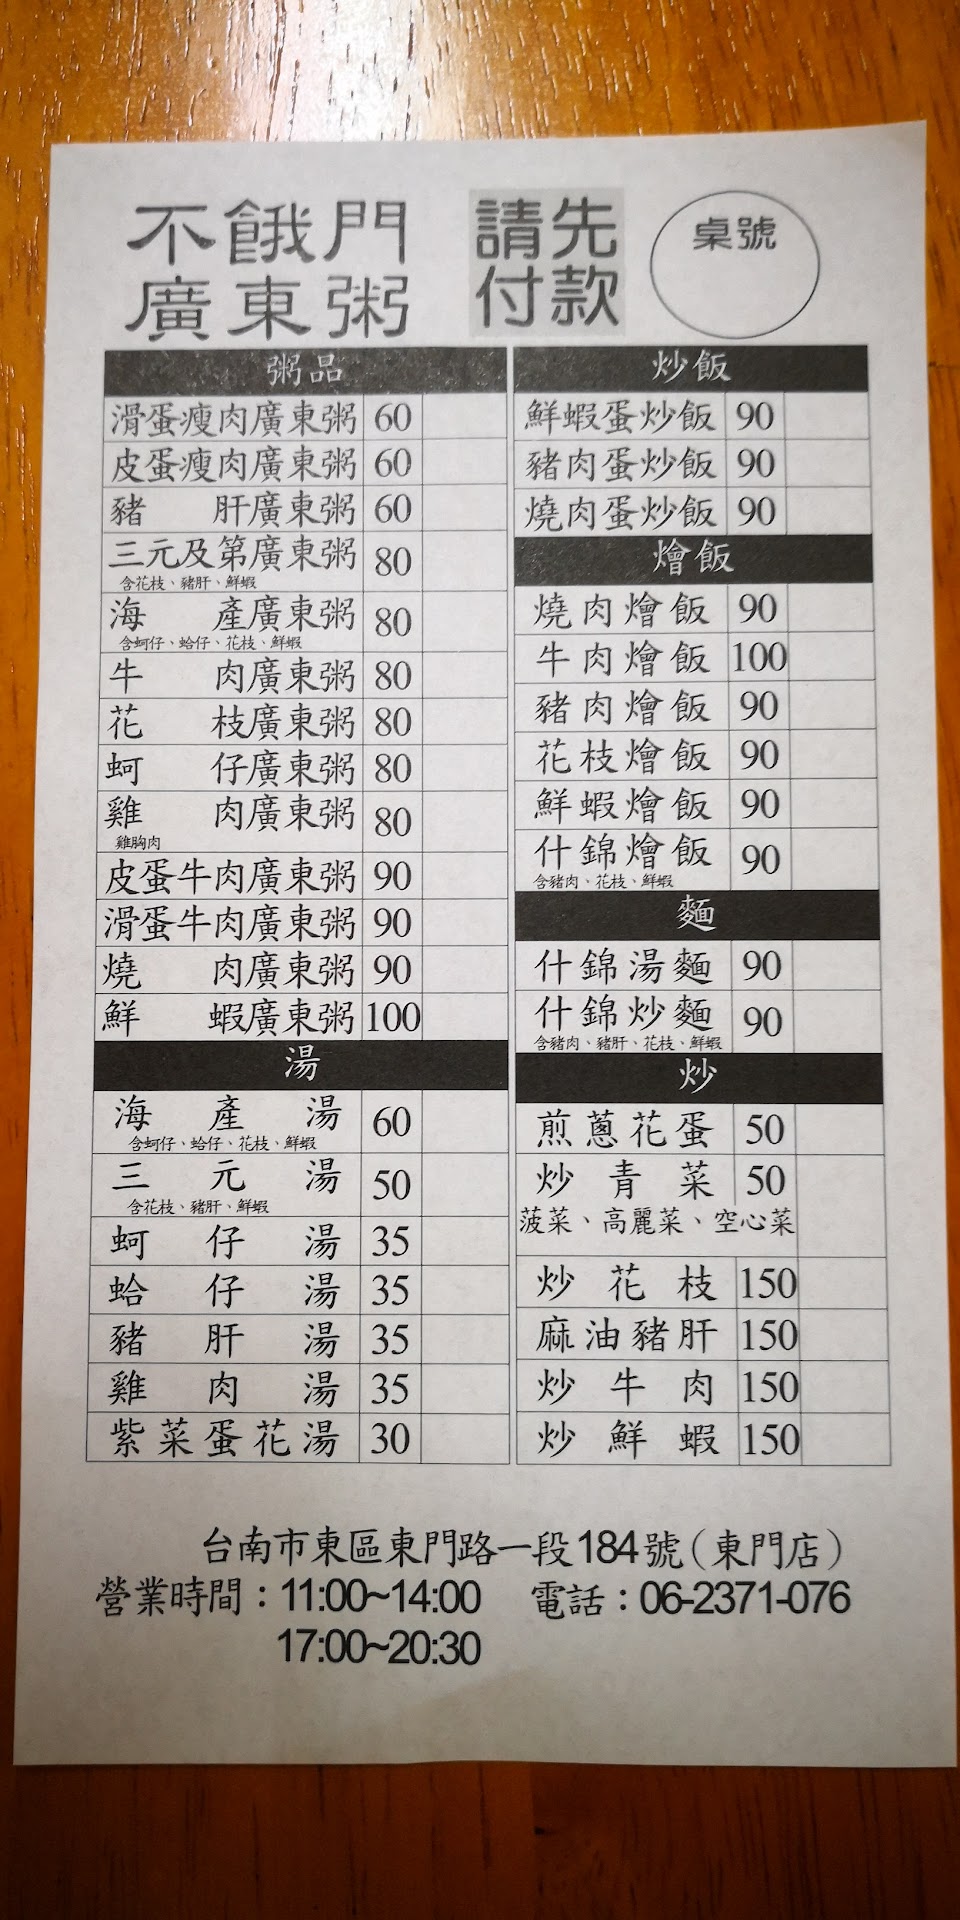 不餓門
廣東粥
請先
付款
桌號
粥品
滑蛋瘦肉廣東粥 60
皮蛋瘦肉廣東粥 60
豬肝廣東粥 60
三元及第廣東粥 80
含花枝、豬肝、鮮蝦
海產廣東粥 80
含蚵仔、蛤仔、花枝、鮮蝦
牛肉廣東粥 80
花枝廣東粥 80
蚵仔廣東粥 80
雞肉廣東粥 80
雞胸肉
皮蛋牛肉廣東粥 90
滑蛋牛肉廣東粥 90
燒肉廣東粥 90
鮮蝦廣東粥 100
湯
海產湯 60
含蚵仔、蛤仔、花枝、鮮蝦
三元湯 50
含花枝、豬肝、鮮蝦
蚵仔湯 35
蛤仔湯 35
豬肝湯 35
雞肉湯 35
紫菜蛋花湯 30
炒飯
鮮蝦蛋炒飯 90
豬肉蛋炒飯 90
燒肉蛋炒飯 90
燴飯
燒肉燴飯 90
牛肉燴飯 100
豬肉燴飯 90
花枝燴飯 90
鮮蝦燴飯 90
什錦燴飯 90
含豬肉、花枝、鮮蝦
麵
什錦湯麵 90
什錦炒麵 90
含豬肉、豬肝、花枝、鮮蝦
炒
煎蔥花蛋 50
炒青菜 50
菠菜、高麗菜、空心菜
炒花枝 150
麻油豬肝 150
炒牛肉 150
炒鮮蝦 150
台南市東區東門路一段184號(東門店)
營業時間:11:00~14:00 電話:06-2371-076
17:00~20:30